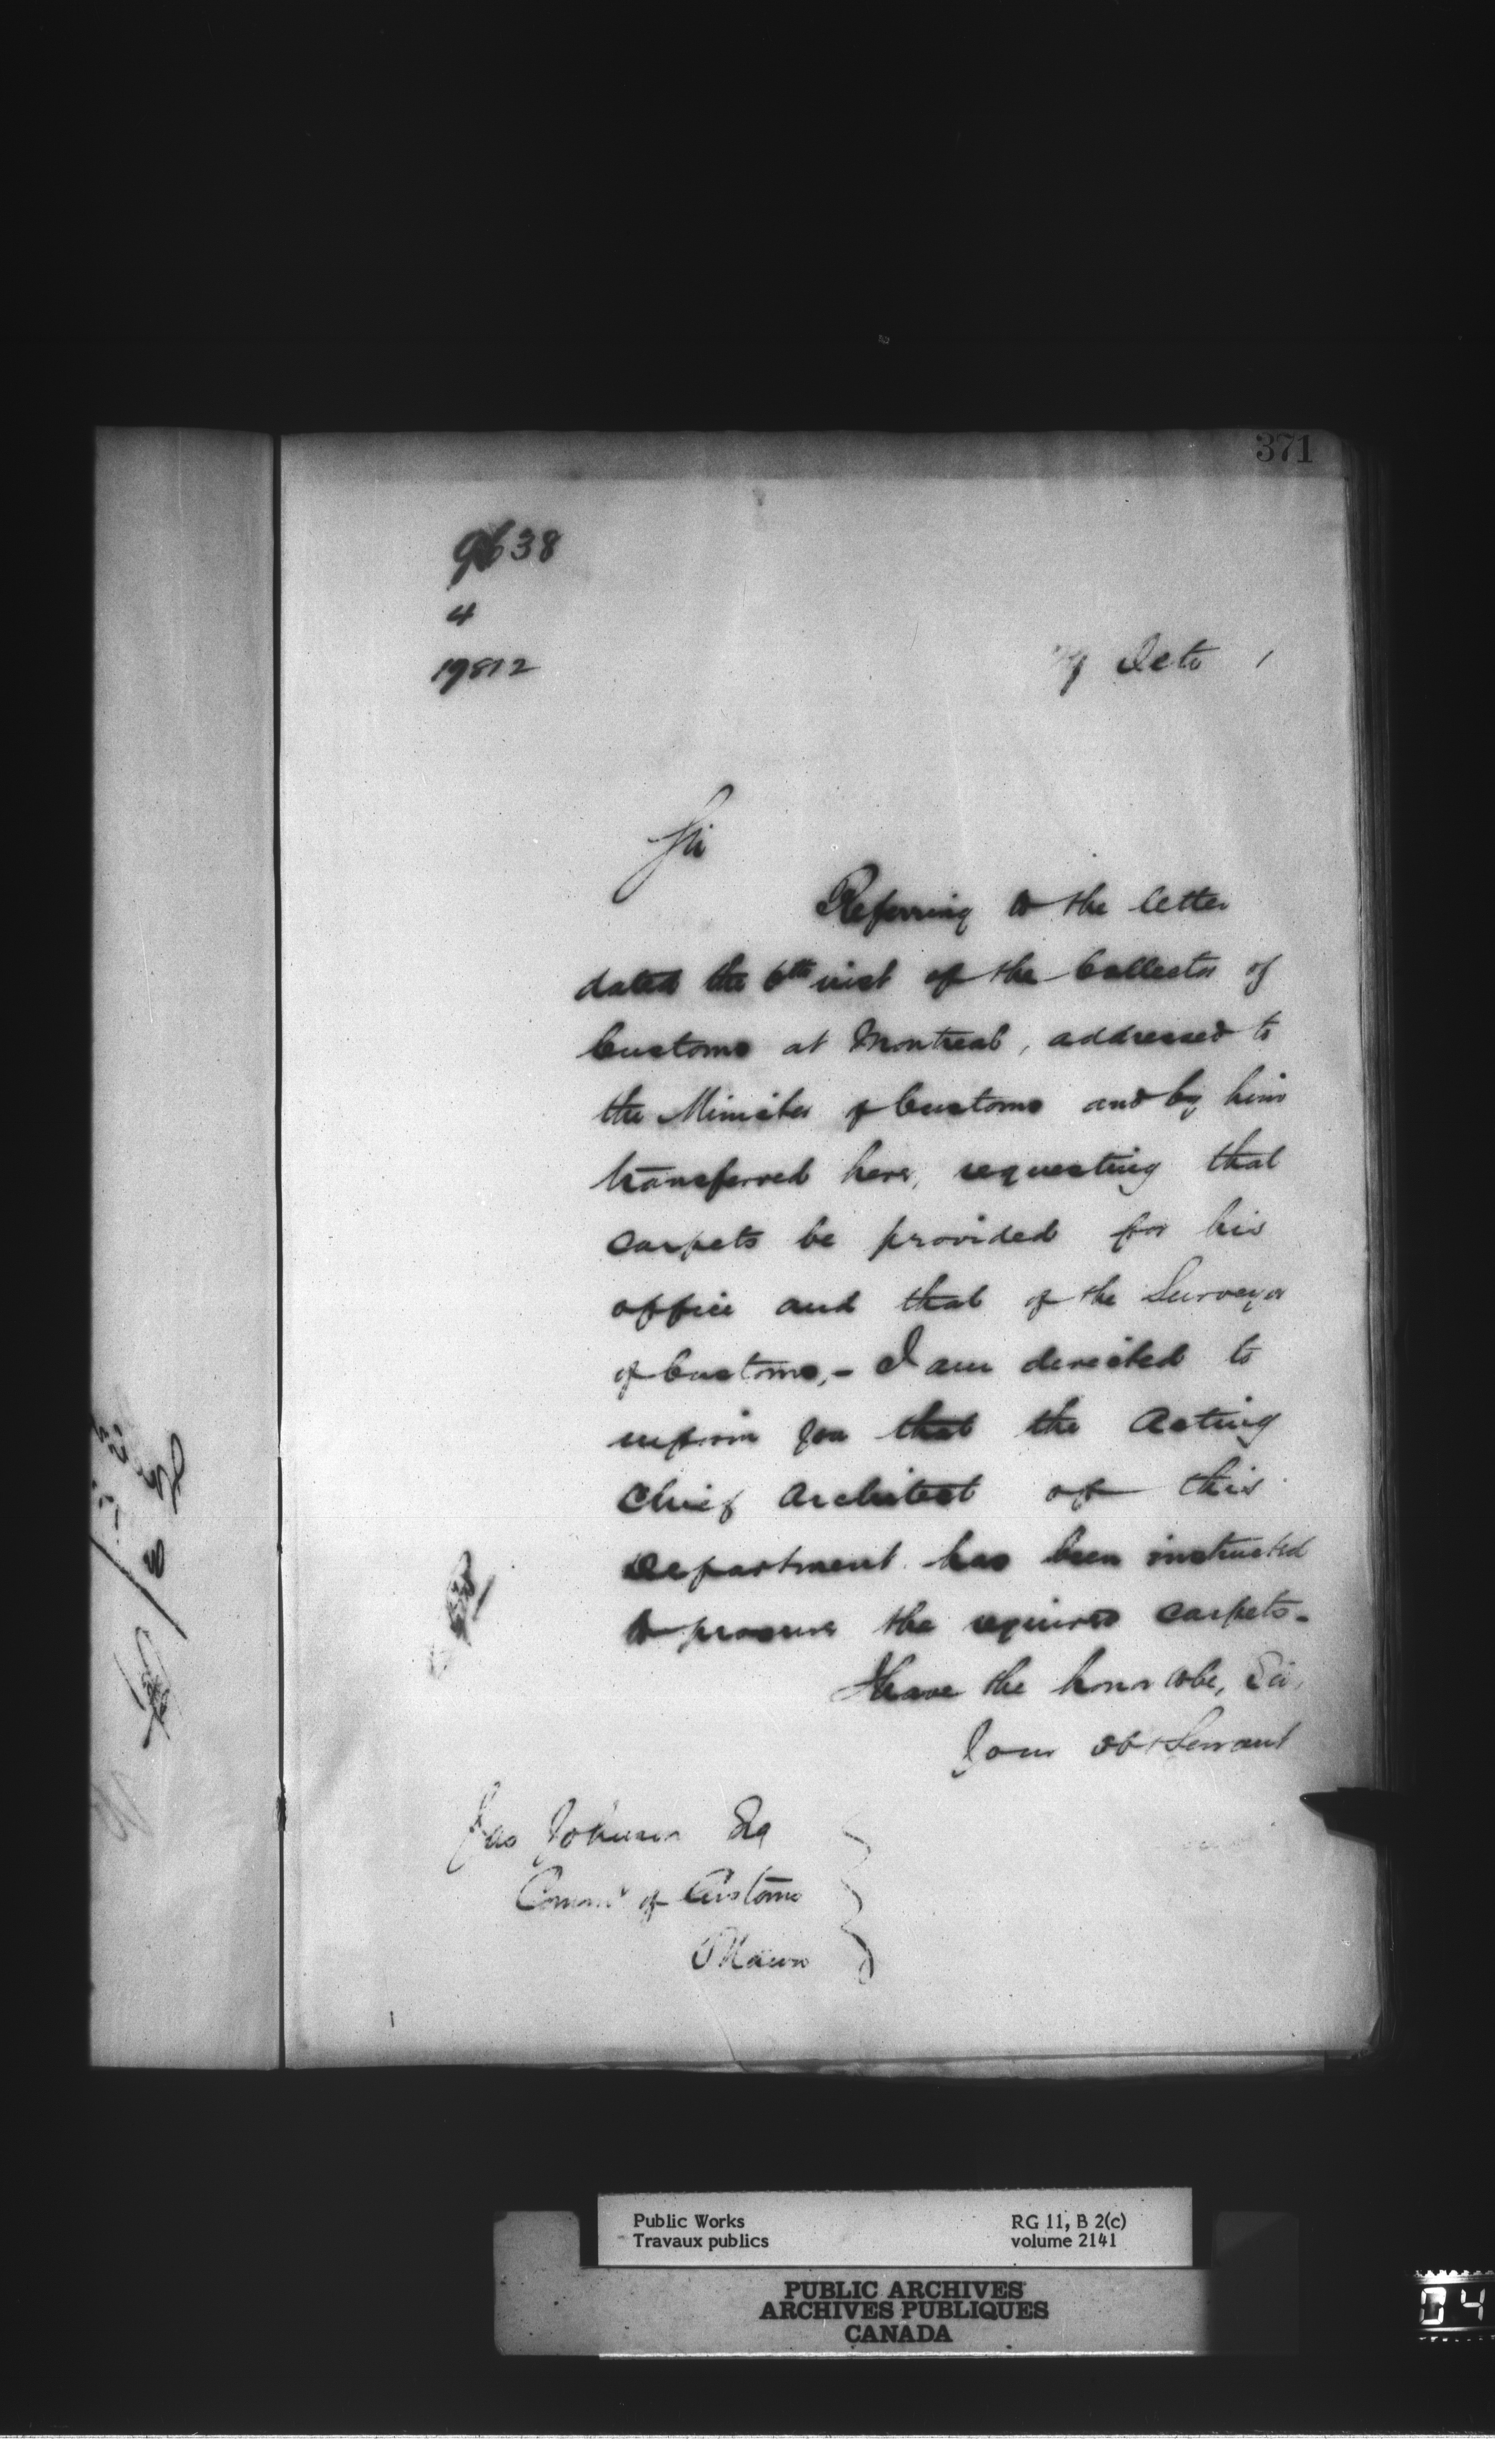 371
9638
4
19812
Octo
Sir
Referring to the letter
dated the 6th inst of the Collector of
Customs at Montreal, addressed to
the Minister of Customs and by him
transferred here, requesting that
carpets be provided for his
office and that of the Surveyor
of Customs,- I am directed to
inform you that the Acting
Chief Architect of this
Department has been instructed
to procure the required carpets.
I have the honor to be, Sir,
Your obt Servant
Jas Johnson Esq
Commr of Customs
Ottawa
Public Works
Travaux publics
RG 11, B 2(c)
volume 2141
PUBLIC ARCHIVES
ARCHIVES PUBLIQUES
CANADA
04